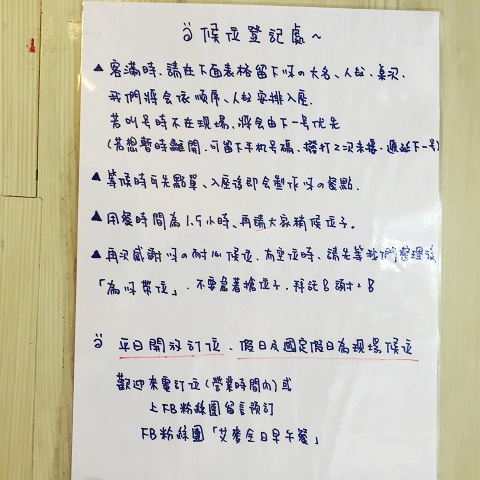 ü 候位登記處~
▲ 客滿時,請在下面表格留下你の大名、人數、桌次.
我們將會依順序、人數安排入座.
若叫号時不在現場,將會由下一号优先
(若想暫時離開,可留下手机号碼,撥打2次未接,遞延下一号)
▲ 等候時可先點單、入座後即會製作你の餐點.
▲ 用餐時間為1.5小時、再請大家稍候位子。
▲ 再次感謝你の耐心候位、有空位時、請先等我們整理後
「為你帶位」.不要急著搶位子.拜託
ü 平日開放訂位、假日及國定假日為現場候位
歡迎來電訂位(營業時間內)或
上FB粉絲團留言預訂
FB粉絲團「艾麥全日早午餐」